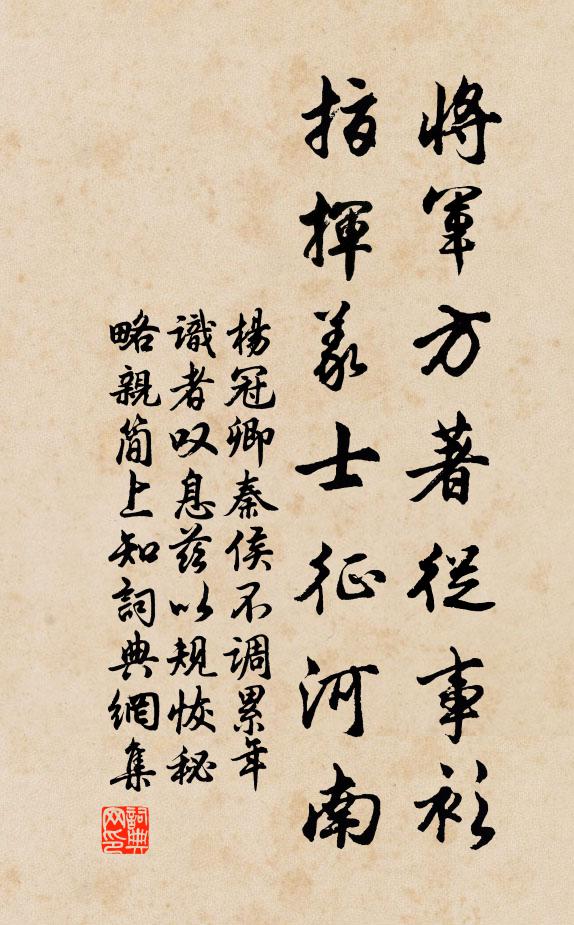 將軍方著從事衫
指揮義士征河南
楊冠卿秦侯不調累年
識者叹息茲以規恢秘
略親简上知詞典網集
詞典网印